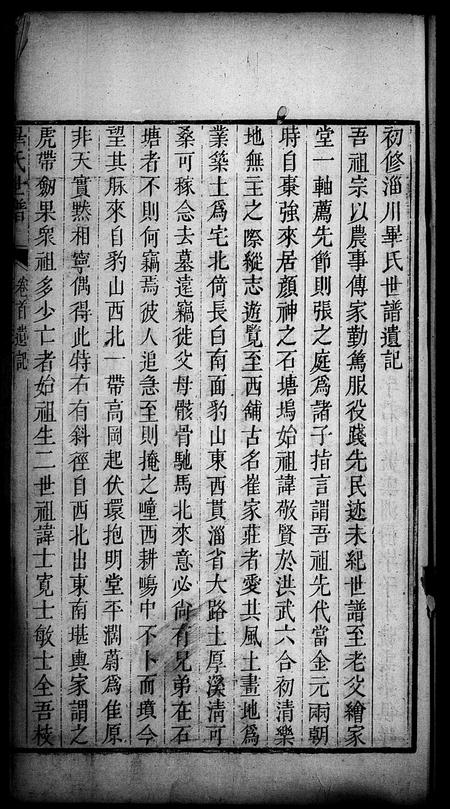 初修淄川畢氏世譜遺記
吾祖宗以農事傳家勤篤服役踐先民迹未紀世譜至老父繪家
堂一軸薦先節則張之庭爲諸子指言謂吾祖先代當金元兩朝
時自棗強來居顏神之石塘塢始祖諱敬賢於洪武六合初清樂
地無主之際縱志遊覽至西舖古名崔家莊者愛其風土畫地爲
業築土爲宅北倚長白南面豹山東西貫淄省大路土厚溪清可
桑可稼念去墓遠竊徙父母骸骨馳馬北來意必尙有兄弟在石
塘者不則何竊焉彼人追急至則掩之疃西耕暘中不卜而墳今
望其脉來自豹山西北一帶高岡起伏環抱明堂平濶蔚爲佳原
非天實黙相寧偶得此特右有斜徑自西北出東南堪輿家謂之
虎帶劒果衆祖多少亡者始祖生二世祖諱士寛士敏士全吾枝
畢氏世譜 卷首遺記